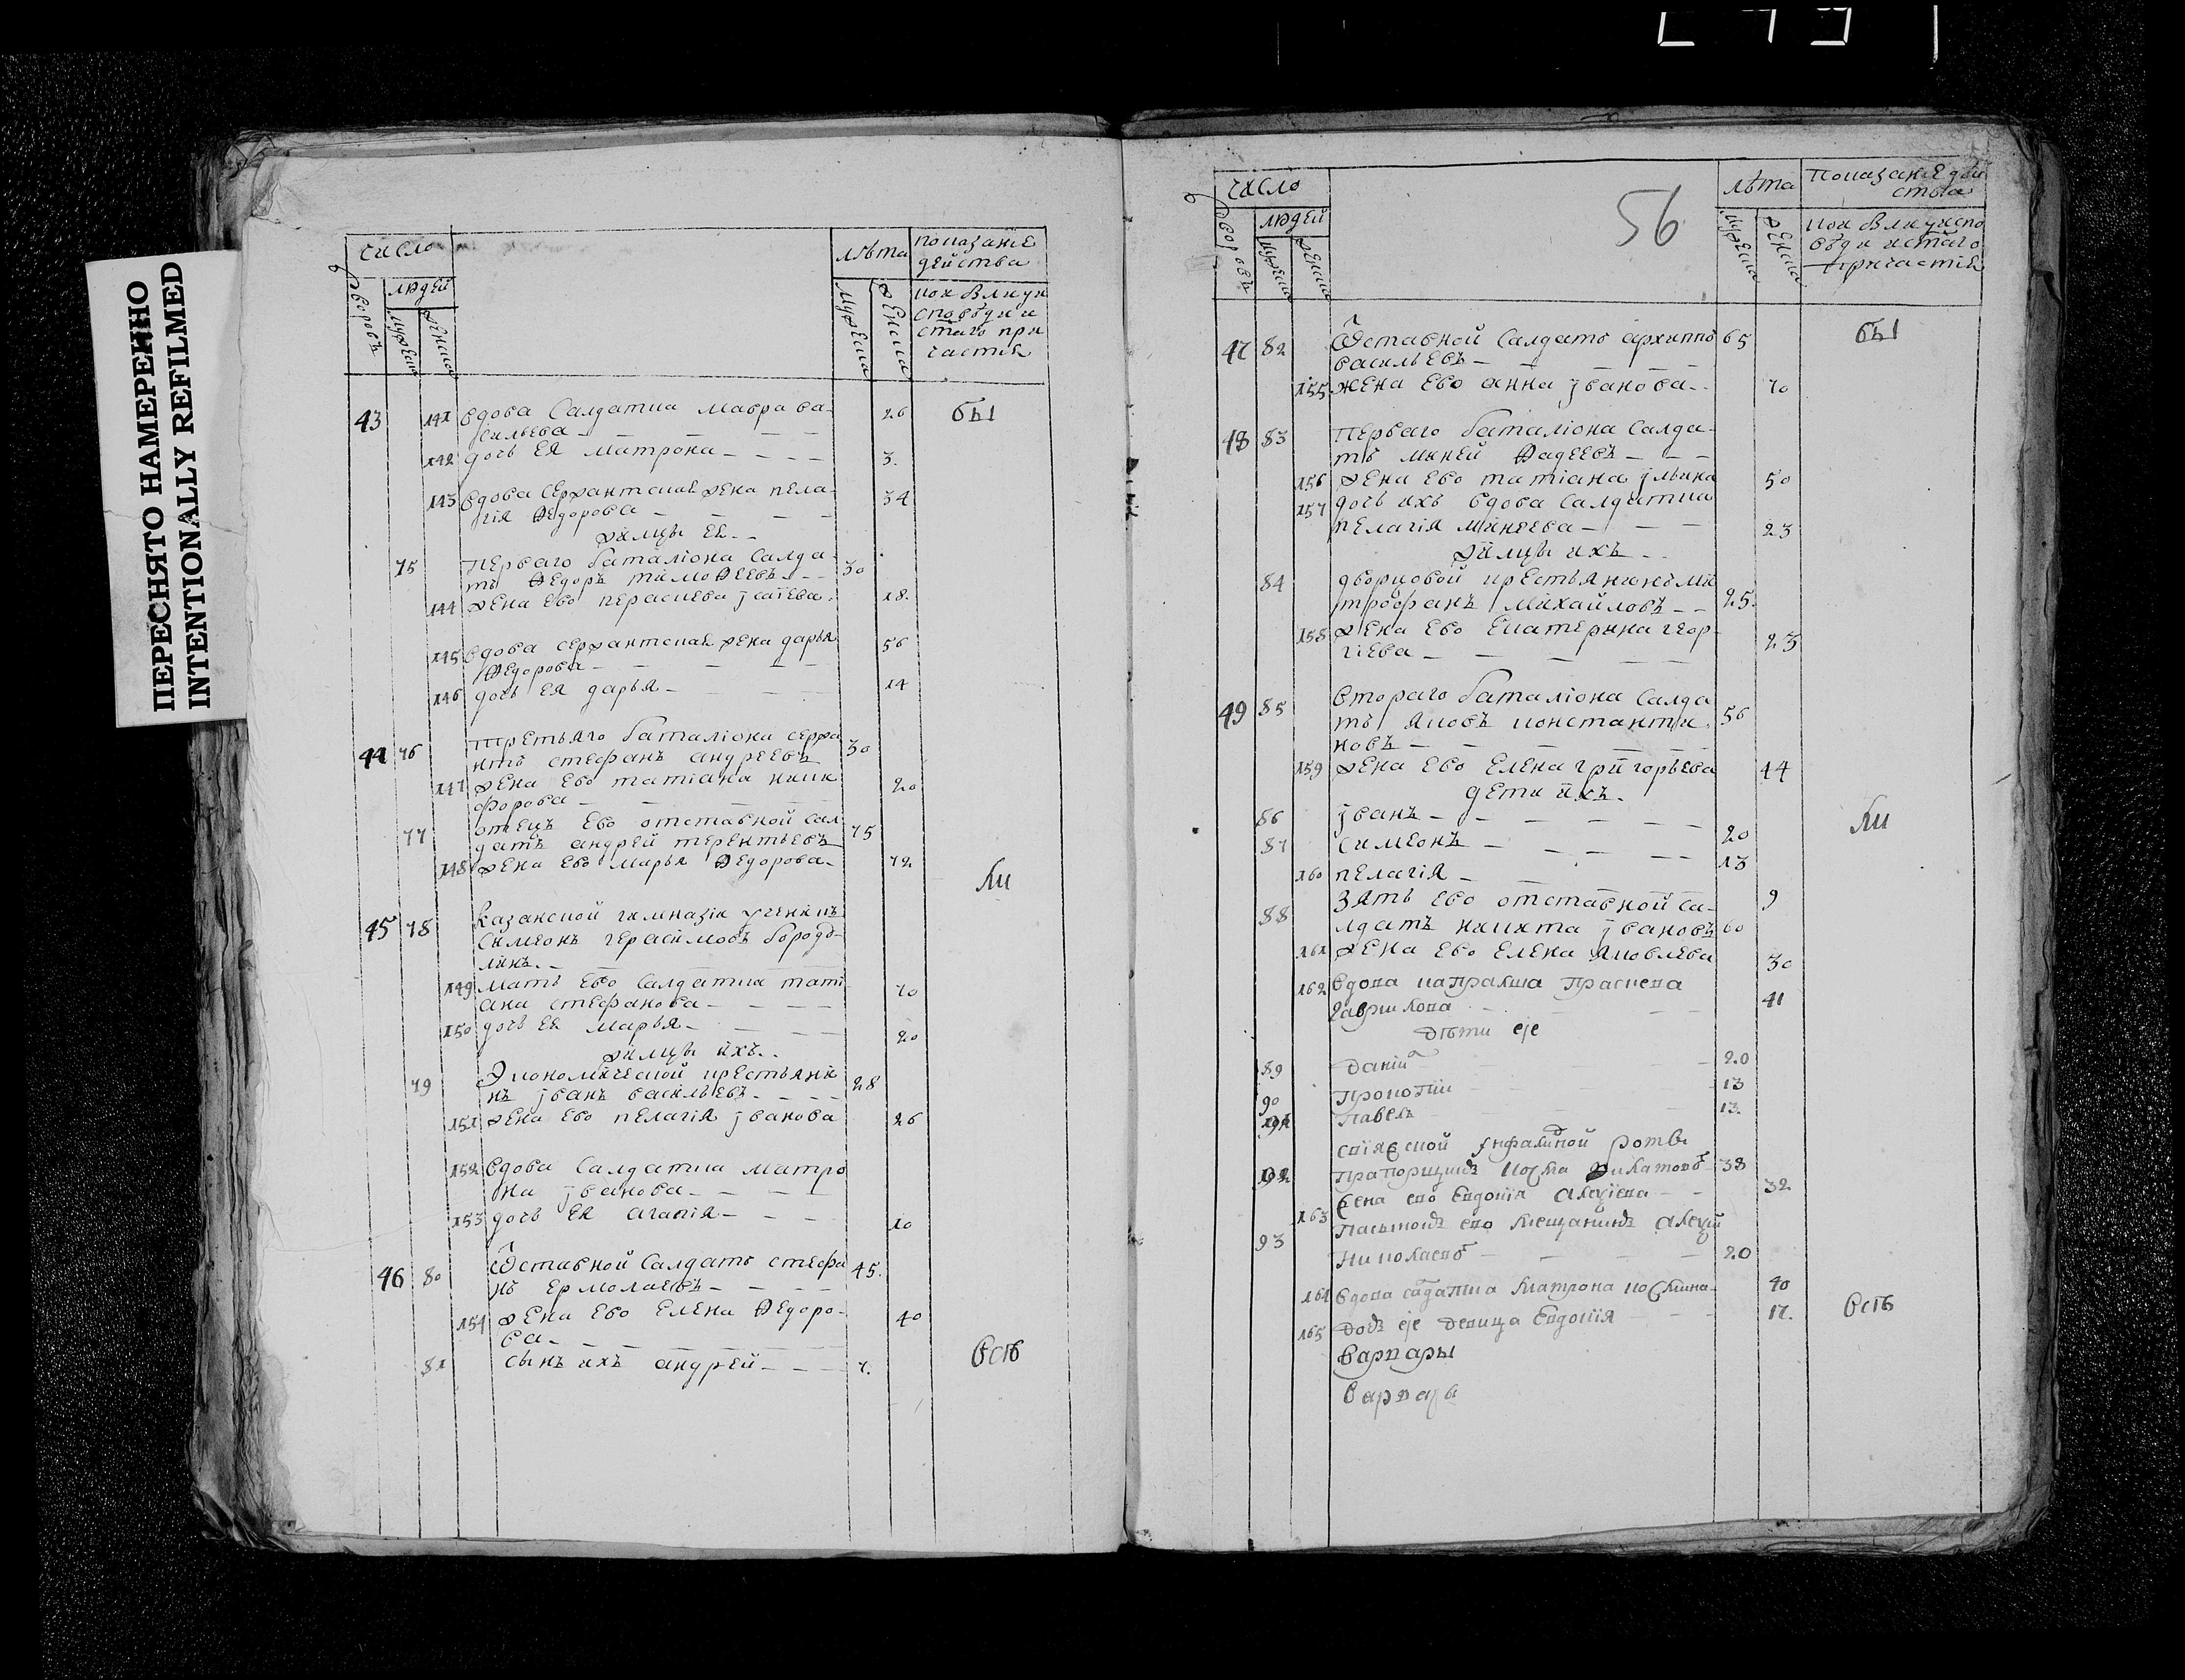 ПЕРЕСНЯТО НАМЕРЕННО
INTENTIONALLY REFILMED
число
лѣта
показание
действа
дворовъ
людей
мужеска
женска
мужеска
женска
кои были у и
споведи и
стаго при
частия
43 141 вдова салдатка мавра ва- 26 бы
сильева
142 дочь ея матрона 3
143 вдова сержантская жена пела- 34
гія ѳедорова
жилцы ея
75 перваго баталіона салда- 30
тъ ѳедоръ тимоѳеевъ
144 жена ево пераскева исаіева 18
145 вдова сержантская жена дарья 56
ѳедорова
146 дочь ея дарья 14
44 76 третьяго баталіона сержа 30
нтъ стефанъ андреевъ
147 жена ево татіана ники 20
форова
77 отецъ ево отставной сал 75
датъ андрей терентьевъ
148 жена ево марья ѳедорова 72
ли
45 78 казанской гимназіи ученикъ
симеонъ герасимовъ
149 мать ево салдатка тати 70
ана стефанова
150 дочь ея марья 20
жилцы ихъ
79 экономической крестьяни 28
нъ іванъ васильевъ
151 жена ево пелагія іванова 26
152 вдова салдатка матро
на іванова
153 дочь ея агапія 10
46 80 Ѿставной салдатъ стефа 45
нъ ермолаевъ
154 жена ево елена ѳедоро- 40
ва
81 сынъ ихъ андрей 7 есть
56
число
лѣта
показание дей
ства
дворовъ
людей
мужеска
женска
мужеска
женска
кои были у испо
веди и стаго
причастія
47 82 Ѿставной салдатъ архиппъ 65 бы
васильевъ
155 жена ево анна іванова 70
48 83 перваго баталіона салда-
тъ миней ѳадеевъ
156 жена ево татіана ільина 50
157 дочь ихъ вдова салдатка
пелагія минеева 23
жилцы ихъ
84 дворцовой крестьянинъ ми
трофанъ михайловъ 25
158 жена ево екатерина геор- 23
гіева
49 85 втораго баталіона салда
тъ яковъ константи 56
новъ
159 жена ево елена григорьева 44
дети ихъ
86 іванъ 20 ли
87 симеонъ 13
160 пелагія 9
88 зять ево отставной са-
лдатъ никита івановъ 60
161 жена ево елена яковлева 30
162 вдова капралша праскева
гаврилова 41
дѣти еје
89 даніил 20
90 прокопіи 13
91 павелъ 13
свіяжской інфалидной роты
92 прапорщикъ косма филатовъ 38
163 жена ево евдокія алеѯіева 32
93 пасынокъ ево мещанинъ алеѯіи
николаевъ 20
164 вдова салдатка матрона космина 40
165 дочь еје девица евдокія 17 есть
варвары
варвары